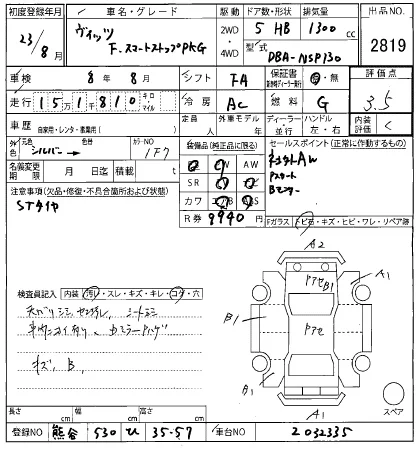 初度登録年月 車名・グレード 駆動 ドア数・形状 排気量 出品NO
23/8月 ヴィッツ F.スマートストップPKG 2WD 4WD 5 HB 1300 cc 2819
型式 DBA-NSP130
車検 8年 8月 シフト FA 保証書 有・無 評価点
走行 151千810 キロ・マイル 冷房 AC 燃料 G 3.5
車歴 自家用・レンタ・事業用( ) 定員 人 外車モデル 年 ディーラー 並行 ハンドル 左・右 内装評価 C
外色 元色 シルバー 色替 カラーNO 1F7 装備品(純正品に限る) セールスポイント(正常に作動するもの)
名義変更期限 月 日迄 積載 t SR カワ AW
注意事項(欠品・修復・不具合箇所および状態) R券 9940円 Pスタート
STタイヤ Fガラス トビ石・キズ・ヒビ・ワレ・リペア跡
検査員記入 内装 汚レ・スレ・キズ・キレ・コゲ・穴
キズ、B
A2
Pアセ B1 A1
B1 Pアセ
B1 A1
A1 スペア
長さ cm 幅 cm 高さ cm
登録NO 熊谷 530 ひ 35-57 車台NO 2032335